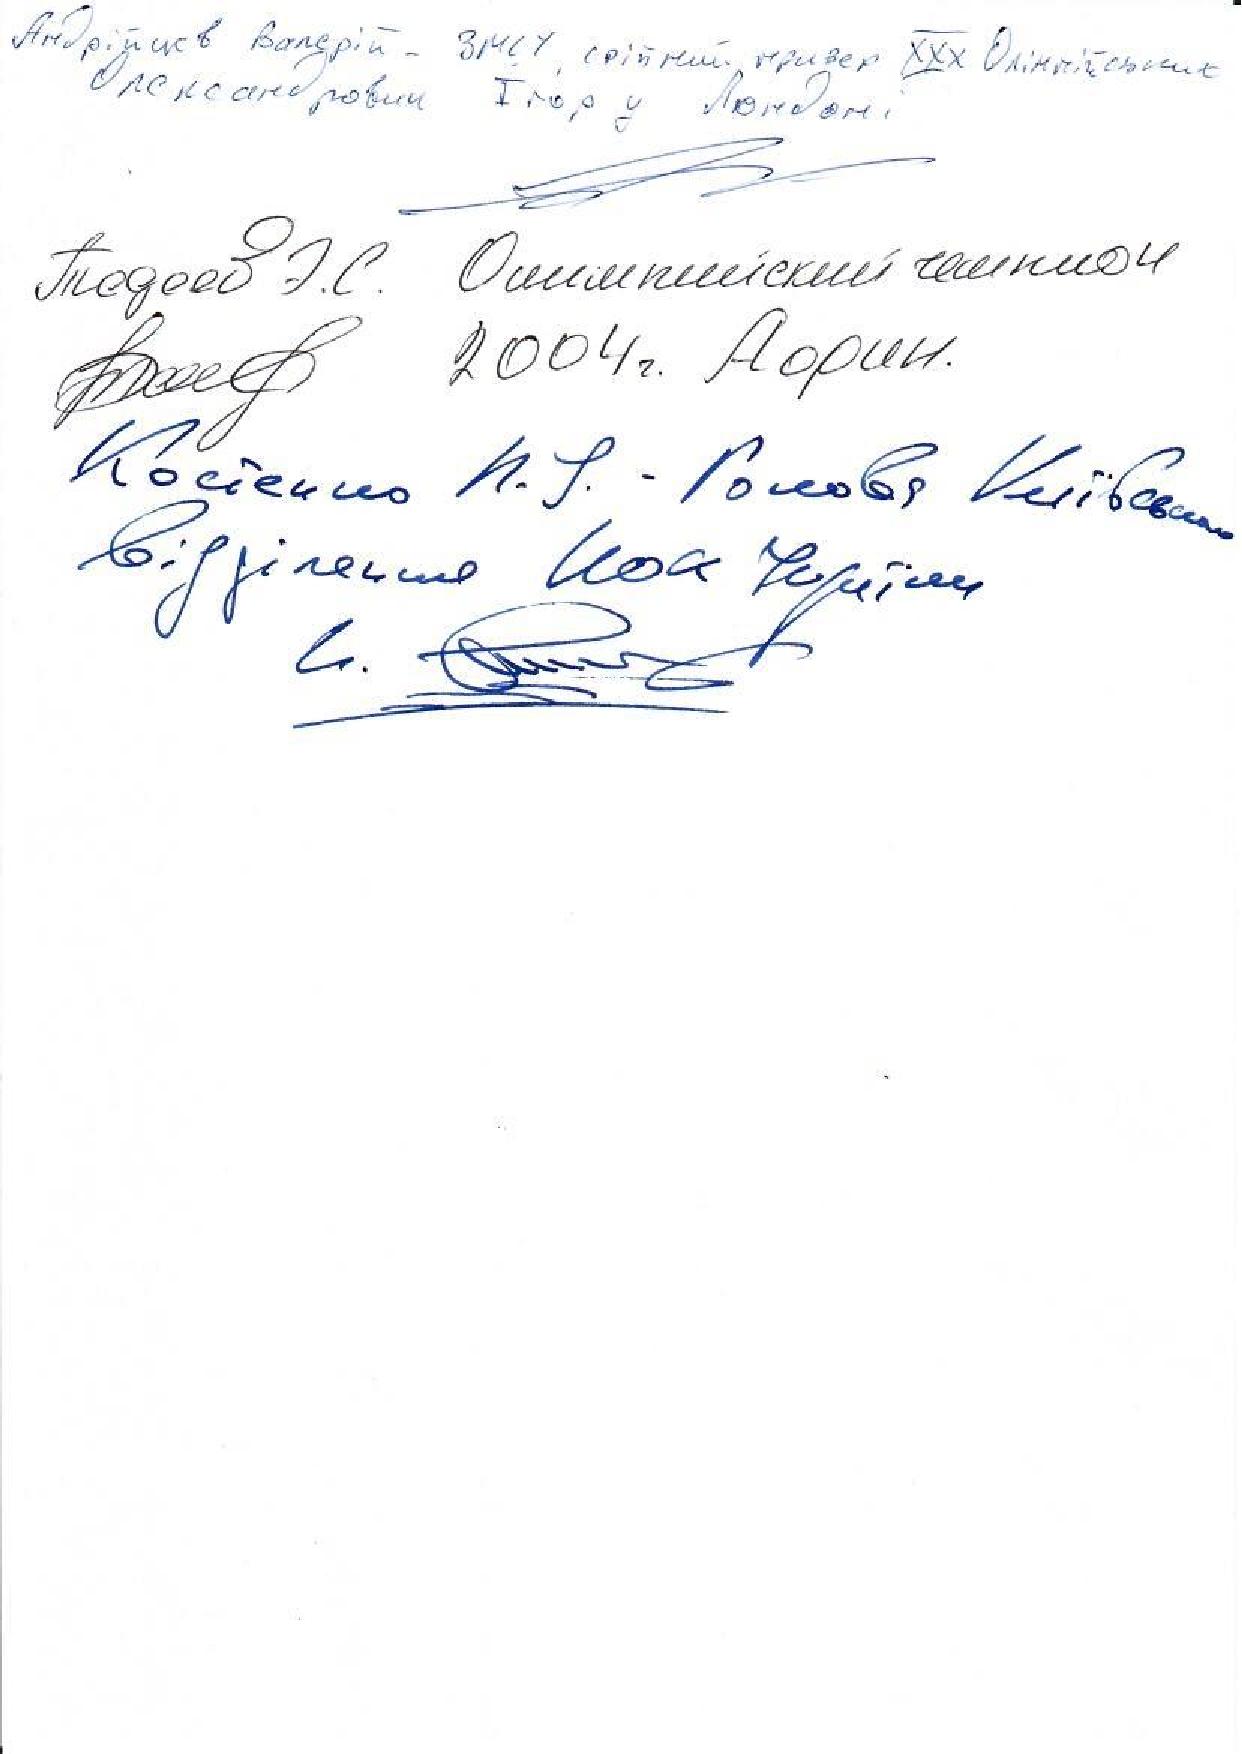 Андрійцев Валерій - ЗМСУ, срібний призер XXX Олімпійських
Олександрович Ігор у Лондоні
Тедеев Э.С. Олимпийский чемпион
2004г. Афин.
Костенко К.І. - Голова Київського
відділення НОК України